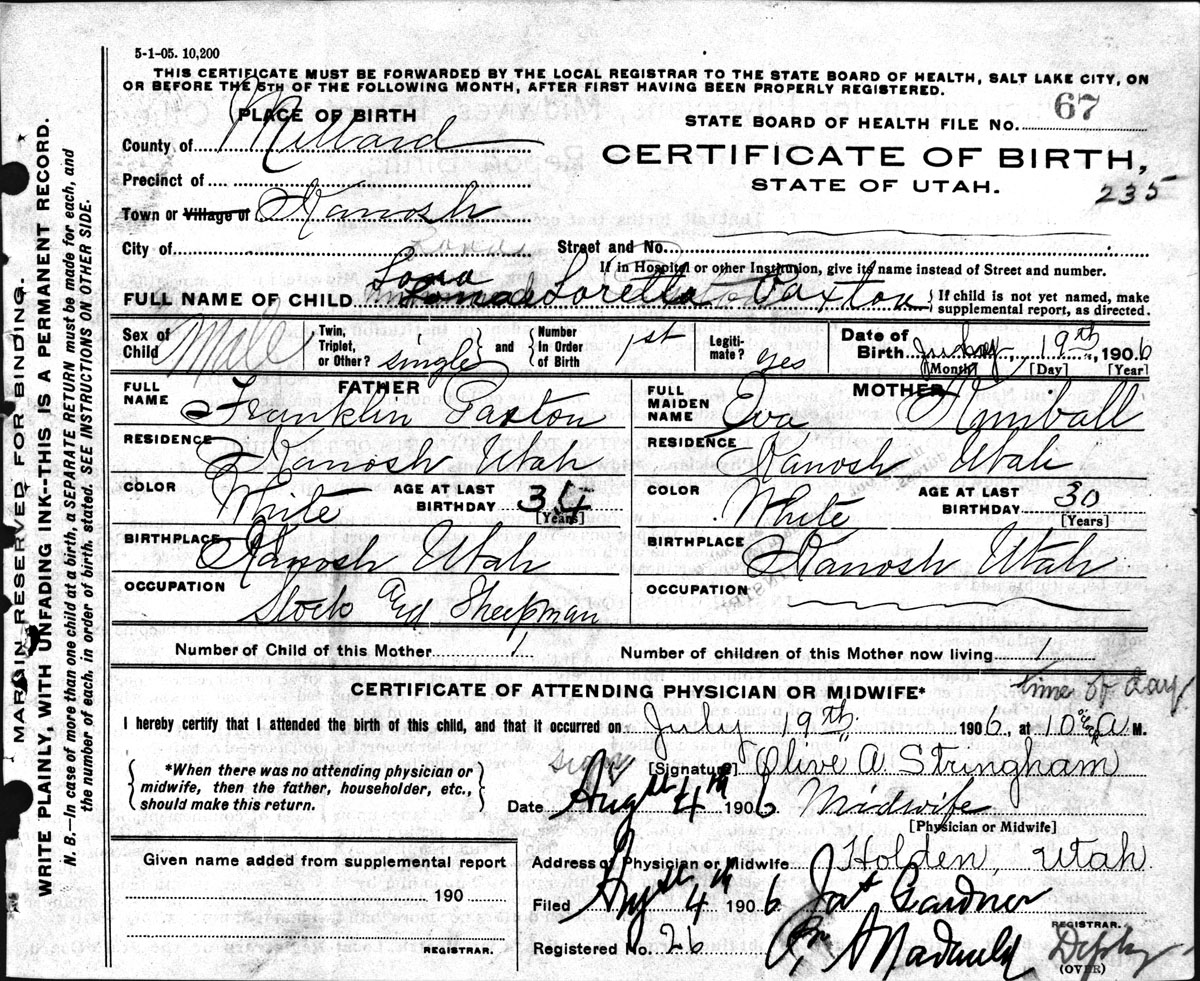 5-1-05. 10,200
THIS CERTIFICATE MUST BE FORWARDED BY THE LOCAL REGISTRAR TO THE STATE BOARD OF HEALTH, SALT LAKE CITY, ON
OR BEFORE THE 5TH OF THE FOLLOWING MONTH, AFTER FIRST HAVING BEEN PROPERLY REGISTERED.
MARGIN RESERVED FOR BINDING.
WRITE PLAINLY, WITH UNFADING INK--THIS IS A PERMANENT RECORD.
N. B.—In case of more than one child at a birth, a SEPARATE RETURN must be made for each, and
the number of each, in order of birth, stated. SEE INSTRUCTIONS ON OTHER SIDE.
PLACE OF BIRTH
County of Millard
Precinct of
Town or Village of Kanosh
City of
STATE BOARD OF HEALTH FILE No. 67
CERTIFICATE OF BIRTH,
STATE OF UTAH.
235
Street and No.
If in Hospital or other Institution, give its name instead of Street and number.
FULL NAME OF CHILD Lona Loretta Paxton { If child is not yet named, make
supplemental report, as directed.
Sex of Child Male
Twin, Triplet, or Other? single and Number In Order of Birth 1st
Legiti-mate? yes
Date of Birth July 19th, 1906
[Month] [Day] [Year]
FATHER
FULL NAME Franklin Paxton
RESIDENCE Kanosh Utah
COLOR White AGE AT LAST BIRTHDAY 34 [Years]
BIRTHPLACE Kanosh Utah
OCCUPATION Stock and Sheepman
MOTHER
FULL MAIDEN NAME Eva Kimball
RESIDENCE Kanosh Utah
COLOR White AGE AT LAST BIRTHDAY 30 [Years]
BIRTHPLACE Kanosh Utah
OCCUPATION
Number of Child of this Mother 1 Number of children of this Mother now living 1
time of day
CERTIFICATE OF ATTENDING PHYSICIAN OR MIDWIFE*
I hereby certify that I attended the birth of this child, and that it occurred on July 19th 1906, at 10 A M.
{ *When there was no attending physician or
midwife, then the father, householder, etc.,
should make this return. }
[Signature] Olive A. Stringham
Date August 4th 1906 Midwife
[Physician or Midwife]
Address of Physician or Midwife Holden, Utah.
Given name added from supplemental report
190
REGISTRAR.
Filed August 4th 1906 Gardner
REGISTRAR.
Registered No. 26 Deputy
(OVER)